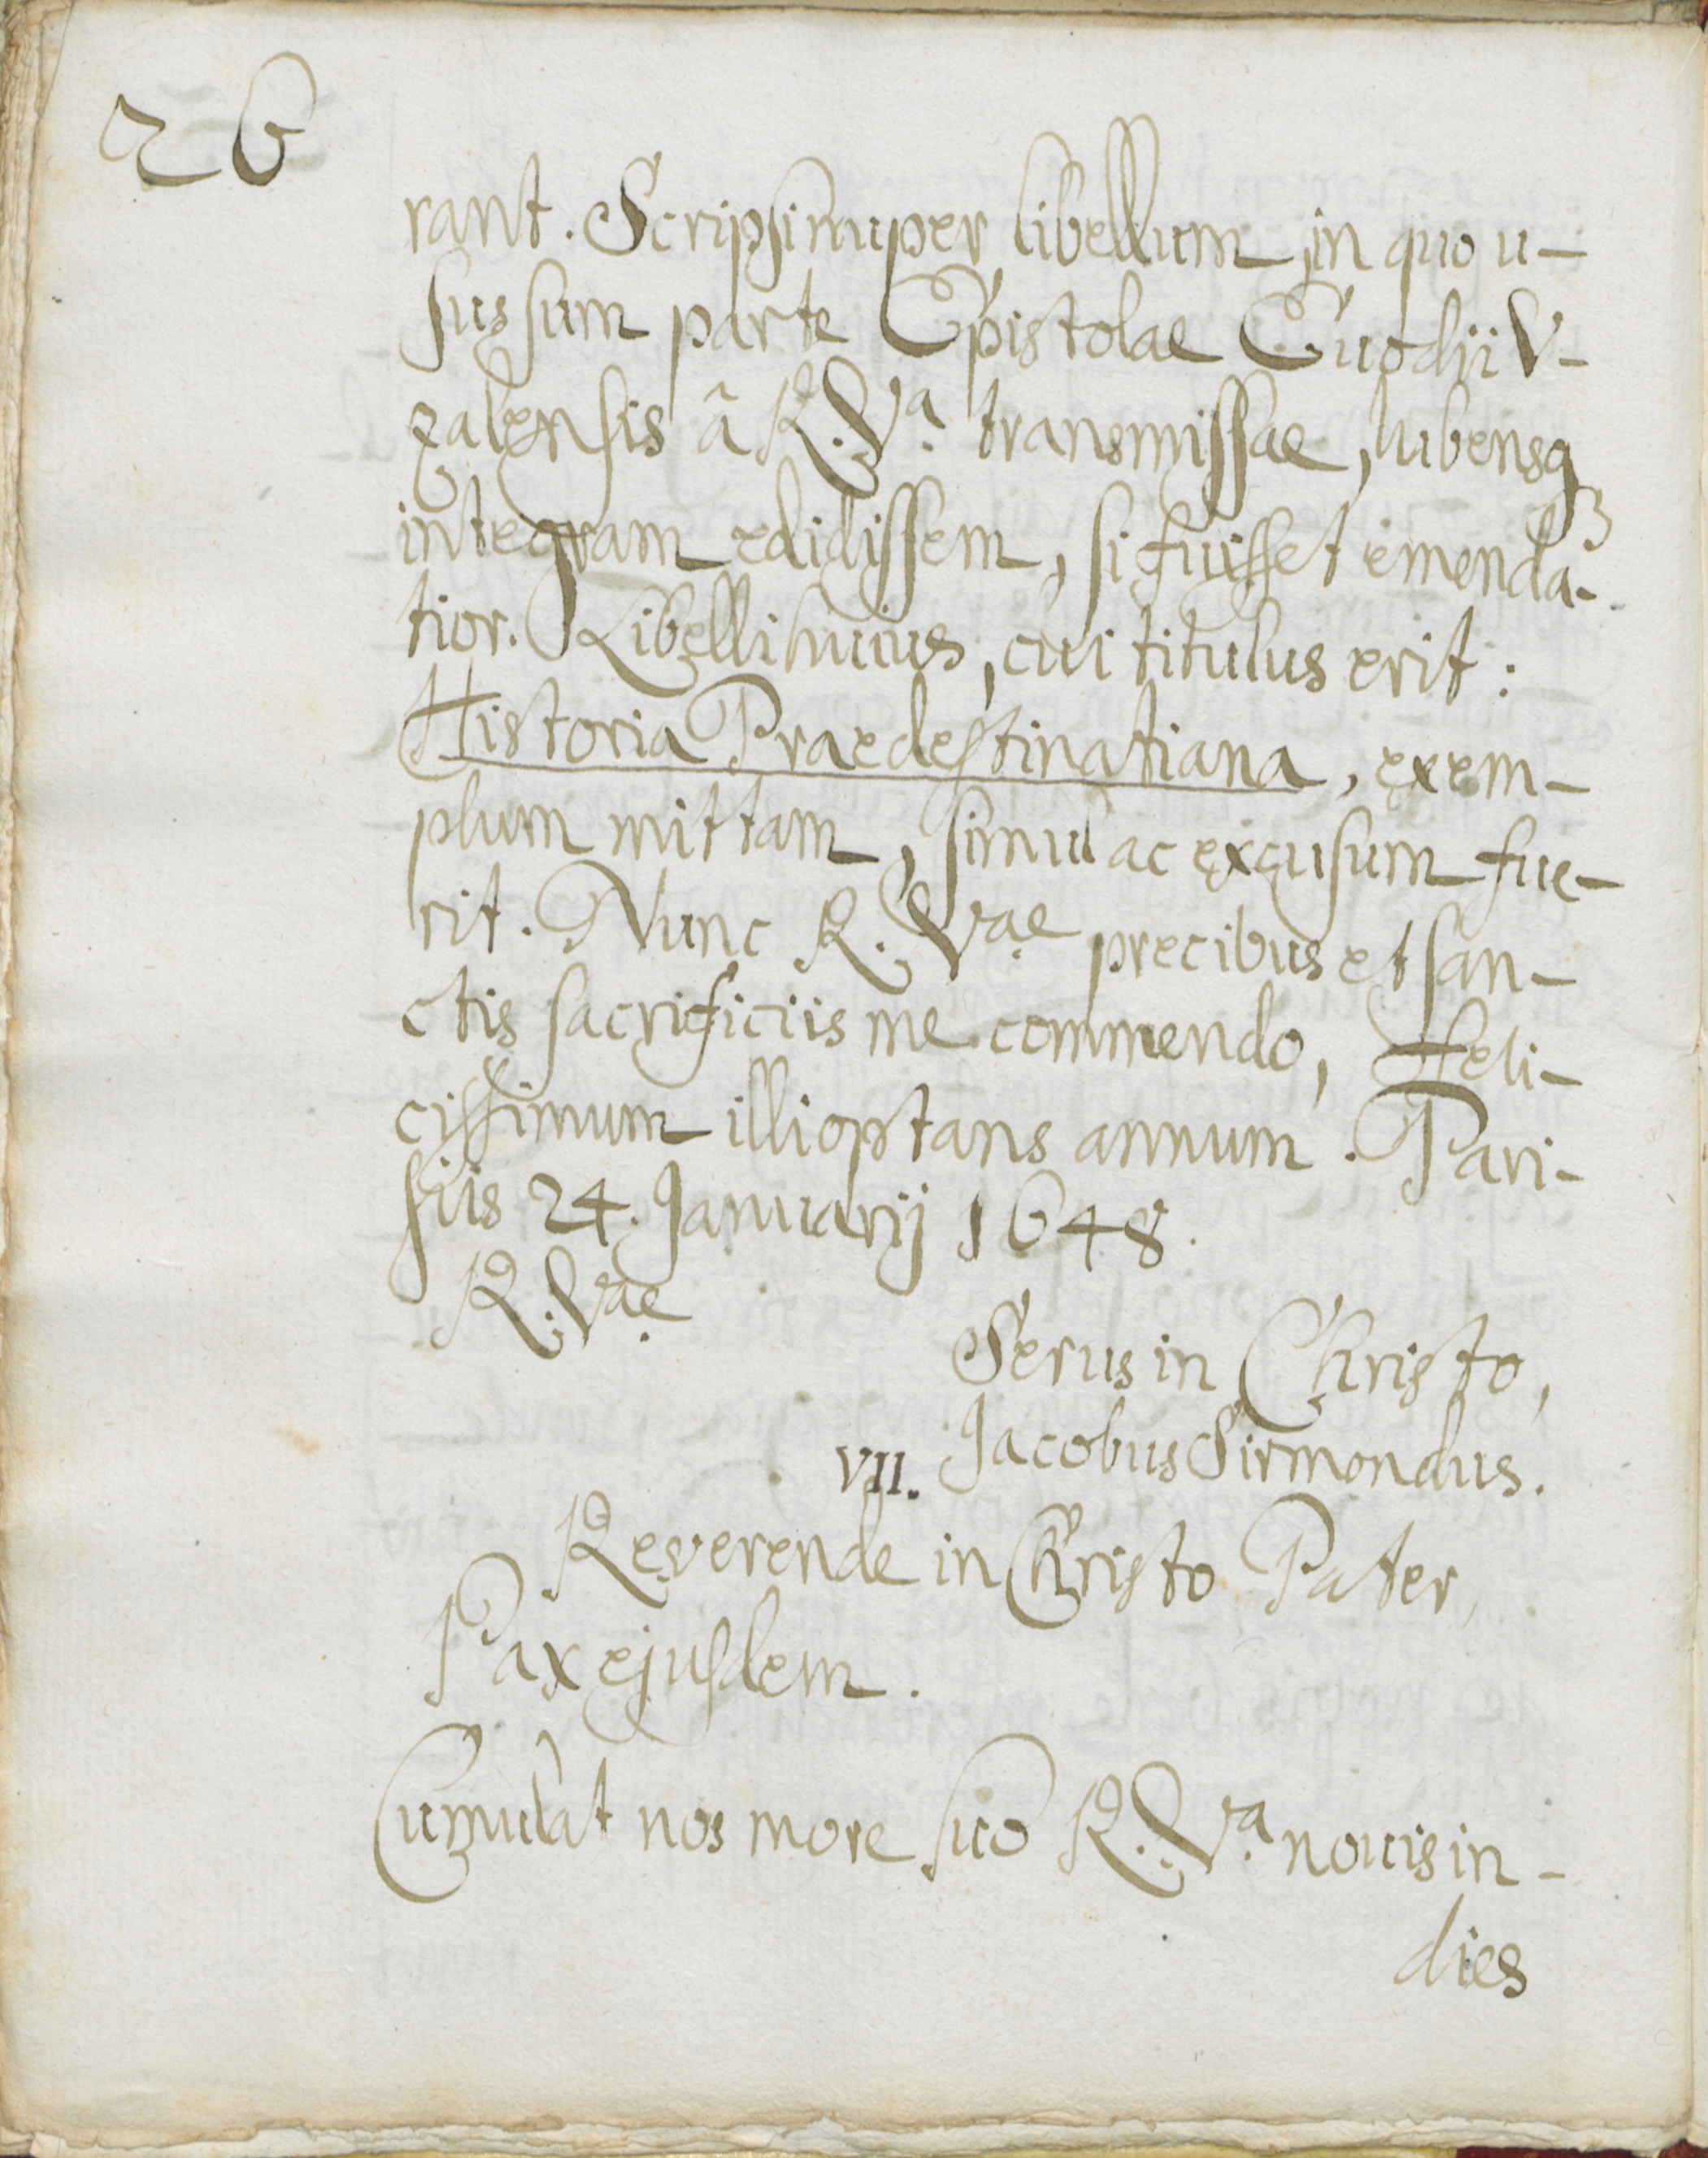 26
rant. Scripsi nuper libellum, in quo u-
sus sum parte Epistolae Euodii V-
zalensis â R. Vᵃ. transmissae, lubensqꝫ
integram edidissem, si fuisset emenda-
tior. Libelli huius, cui titulus erit:
Historia Praedestinatiana, exem-
plum mittam, simul ac excusum fue-
rit. Nunc R. Vae. precibus et san-
ctis sacrificiis me commendo, feli-
cissimum illi optans annum. Pari-
siis 24. Januarij 1648.
R. Vae.
Serus in Christo,
Jacobus Sirmondus.
VII.
Reverende in Christo Pater,
Pax ejusdem.
Cumulat nos more suo R. Vᵃ. nouis in-
dies